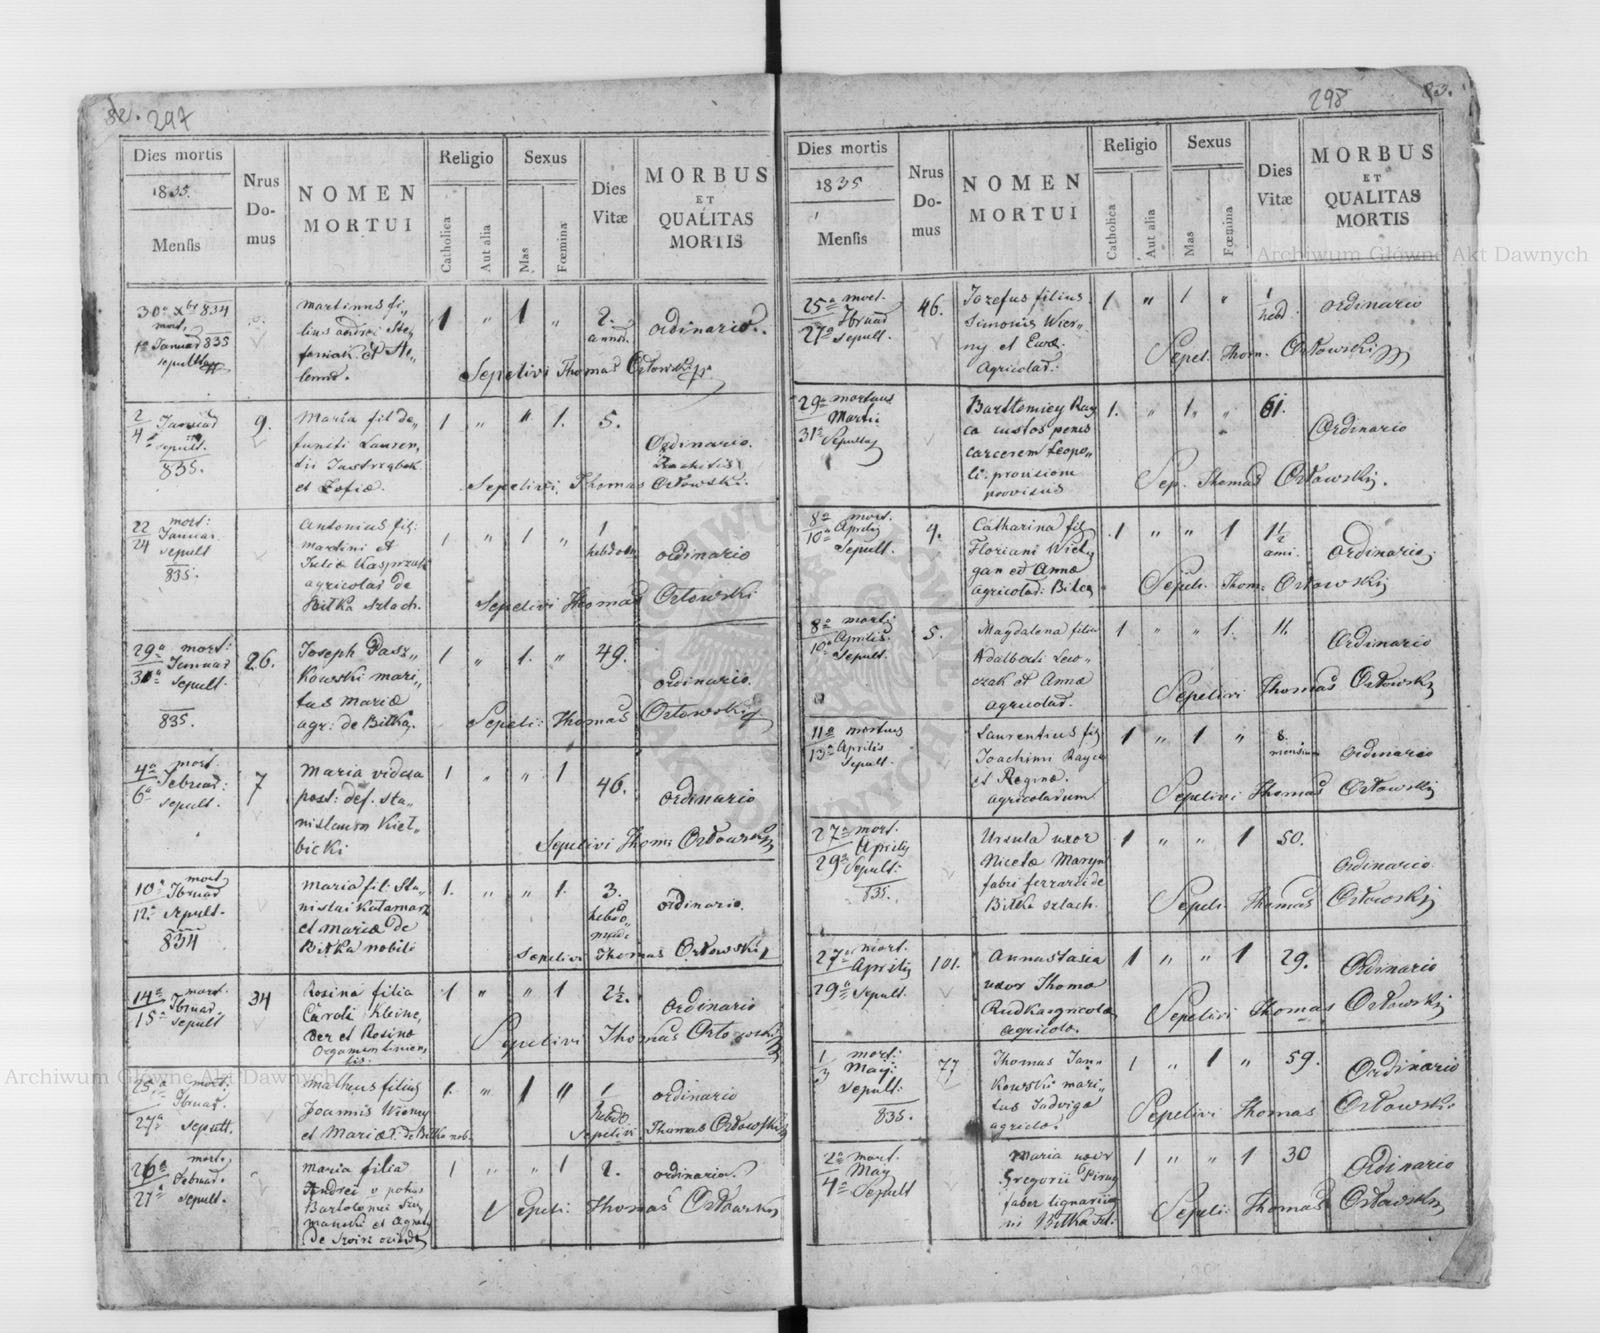 82. 297
Dies mortis
1835.
Mensis
Nrus
Do-
mus
NOMEN
MORTUI
Religio
Catholica
Aut alia
Sexus
Mas
Fœmina
Dies
Vitæ
MORBUS
ET
QUALITAS
MORTIS
30a Xbr 834
mort,
1a Januar 835
sepult
Martinus fi„
lius Andrei Ste„
faniak et He„
lena.
1 „ 1 „ 2.
annor.
ordinario.
Sepelivi Thomas Orłowski
2 Januar
4 sepult.
835.
9.
Maria fil. de„
functi Lauren„
tii Jastrząbek
et Zofiæ.
1. „ „ 1. 5.
Ordinario.
Rachitis
Sepelivi Thomas Orłowski.
22 mort:
24 Januar
sepult
835.
Antonius fil:
Martini et
Juliæ Kasprzak
agricolar de
Bitka szlach.
1 „ 1 „ 1
hebdom
ordinario
Sepelivi Thomas Orłowski
29a mort:
Januar
31a Sepult.
835.
26.
Joseph Pasz„
kowski mari„
tus Mariæ
agr: de Bitka.
1 „ 1. „ 49.
ordinario.
Sepeli: Thomas Orłowski
4a mort.
Februar:
6a sepult.
7
Maria vidua
post: def. Sta„
nislaum Kieł„
bicki
1 „ „ 1 46.
ordinario
Sepelivi Thom: Orłowski
10a mort
Fbruar
12a sepult.
834
Maria fil: Sta„
nislai Katamarz
et Mariæ de
Bitka nobili
1. „ „ 1. 3.
hebdo„
madæ
ordinario.
Sepelivi Thomas Orłowski
14a mort.
Fbruar.
15a sepult
34
Rosina filia
Caroli Kleine„
der et Rosinæ
1 „ „ 1 2½.
ordinario
Sepelivi Thomas Orłowski
25a mort:
Fbruar.
27a sepult.
Matheus filius
Joannis Wierny
et Mariæ. de Bitka nob.
1. „ 1 „ 1
hebdo
ordinario
Sepelivi Thomas Orłowski
26a mort.
Februar.
27a sepult.
Maria filia
Andrei
Bartolomei
1 „ „ 1 2.
ordinario.
Sepeli: Thomas Orłowski
298 83.
Dies mortis
1835
Mensis
Nrus
Do-
mus
NOMEN
MORTUI
Religio
Catholica
Aut alia
Sexus
Mas
Fœmina
Dies
Vitæ
MORBUS
ET
QUALITAS
MORTIS
25a mort.
Fbruar
27a sepult.
46.
Jozefus filius
Simonis Wier„
ny et Ewæ.
Agricolar.
1 „ 1 „ 1
hebd.
ordinario
Sepel. Thom. Orłowski
29a mortuus
Martii
31a Sepultus
Bartłomiey Ray
ca custos penes
carcerem Leopo„
li: provisione
provisus
1. „ 1. „ 61.
Ordinario
Sep. Thomas Orłowski.
8a mort.
10a Aprilis
Sepult.
4.
Catharina fil
Floriani
gan et Annæ
agricolar: Bitka
1 „ „ 1 1½
anni.
ordinario.
Sepeli. Thom: Orłowski
8a mort:
Aprilis
10a Sepult.
5.
Magdalena filia
Adalberti Lew„
czak et Annæ
agricolar.
1 „ „ 1. 11.
Ordinario
Sepelivi Thomas Orłowski
11a mortuus
13a Aprilis
Sepult.
Laurentius fil
Joachimi Rayca
et Reginæ.
agricolarum
1 „ 1 „ 8.
mensium
ordinario
Sepelivi Thomas Orłowski
27a mort.
Aprilis
29a Sepult:
835.
Ursula uxor
Nicetæ Maryn
fabri ferrarii de
Bitka szlach.
1 „ „ 1 50.
Ordinario
Sepeli. Thomas Orłowski
27a mort.
Aprilis
29a Sepult.
101.
Annastasia
uxor Thomæ
Rudka agricola
agricolæ.
1 „ „ 1 29.
Ordinario
Sepelivi Thomas Orłowski
1 mort:
3 May:
sepult:
835.
77
Thomas Jan„
kowski mari„
tus Jadvigæ
agricol.
1 „ 1 „ 59.
Ordinario
Sepelivi Thomas Orłowski.
2a mort.
May
4a Sepult
Maria uxor
Gregorii
faber lignarius
Bitka szl.
1 „ „ 1 30
Ordinario
Sepeli: Thomas Orłowski
Archiwum Główne Akt Dawnych
Archiwum Główne Akt Dawnych